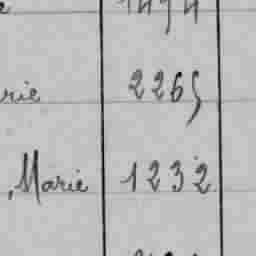 rie 2265
, Marie 1232